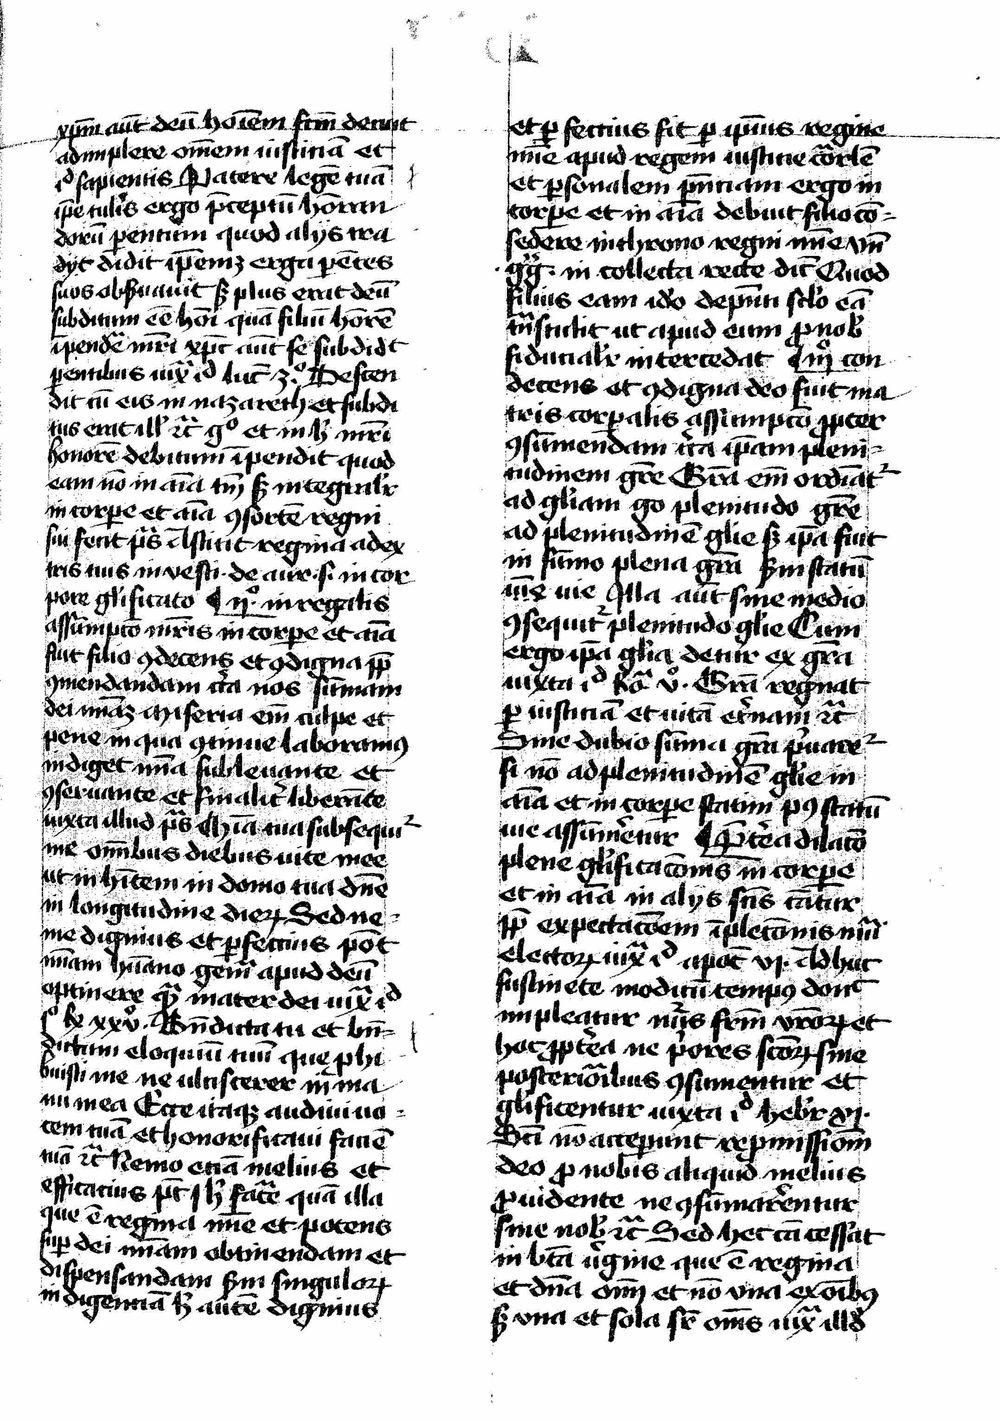 xpm aut deu hoiem fcm decuit
adimplere omem iusticia et
id sapientis Patere lege tua
ipe tulis ergo pceptu honran
doru pentum quod alijs tra
dyt didit ipemz erga pentes
suos obseruauit sz plus erat deu
subditum ee hoi qua filiu honore
ipende mri xpc aut se subdidit
pentibus iux id luc 2o Descen
dit cu eis in nazareth et subdi
tus erat ill rc go et in h mri
honore debitum ipendit quod
eam no in aia tm sz integralr
in corpe et aia gsorte regni
sui fecit ps Astitit regina a dex
tris tuis in vesti. de aur. s. in cor
pore glificato ¶ IIo. in regalis
assumpto mris in corpe et aia
fuit filio gdecens et gdigna pp
gmendandam cca nos summam
dei miaz Miseria em culpe et
pene in qua gtinue laboramus
indiget mia subleuante et
gseruante et finalit liberate
iuxta illud ps Mia tua subsequit
me omibus diebus uite mee
ut inhitem in domo tua dne
in longitudine dierz Sed ne-
me dignius et pfectius pot
miam huano genri apud deu
optinere qz mater dei iux id
io R xxvo. Bndicta tu et bn-
dictum eloquiu tuu que phi
buisti me ne ulciscerer in ma
nu mea Ecce itaqz audiui uo-
cem tua et honorificaui facie
tua rc Nemo etia melius et
efficatius pt h facere qua illa
que e regina mie et potens
sup dei miam obtinendam et
dispensandam scdm singulorz
indigencia h aute dignius
et pfectius fit p ipius regine
mie apud regem iusticie corle
et psonalem pnciam ergo in
corpe et in aia debuit filio co-
sedere in throno regni mie vn
gg. in collecta recte dic Quod
filius eam ido de pnti sclo ea
tnstulit ut apud eum p nob
fiducialr intercedat ¶ IIIo con
decens et gdigna deo fuit ma
tris corpalis assumpto ppter
gsumendam cca ipam pleni-
tudinem gre Gra em ordiat
ad gliam go plenitudo gre
ad plenitudine glie sz ipa fuit
in sumo plena gra scdm statu
uie Illa aut sine medio
gsequit plenitudo glie Cum
ergo ipa glia detur ex gra
iuxta id Ro vo. Gra regnat
p iusticia et uita eternam rc
Sine dubio suma gra puaret
si no ad plenitudine glie in
aia et in corpe statim post statu
uie assumeretur ¶ Preterea dilato
plene glificacois in corpe
et in aia in alijs scis catur
pp expectacoem ipletois nuri
electorz iux id apoc vi. Adhuc
sustinete modicu tempus donec
impleatur nus frm vrorz et
hoc ppterea ne priores sctorz sine
posterioribus gsumentur et
glificentur iuxta id hebr xi.
Sci no acceperunt repmissiom
deo p nobis aliquid melius
puidente ne gsumarentur
sine nob rc Sed hec ca cessat
in bta ugine que e regina
et dna oim et no vna ex oibus
sz vna et sola sr oms iux illd